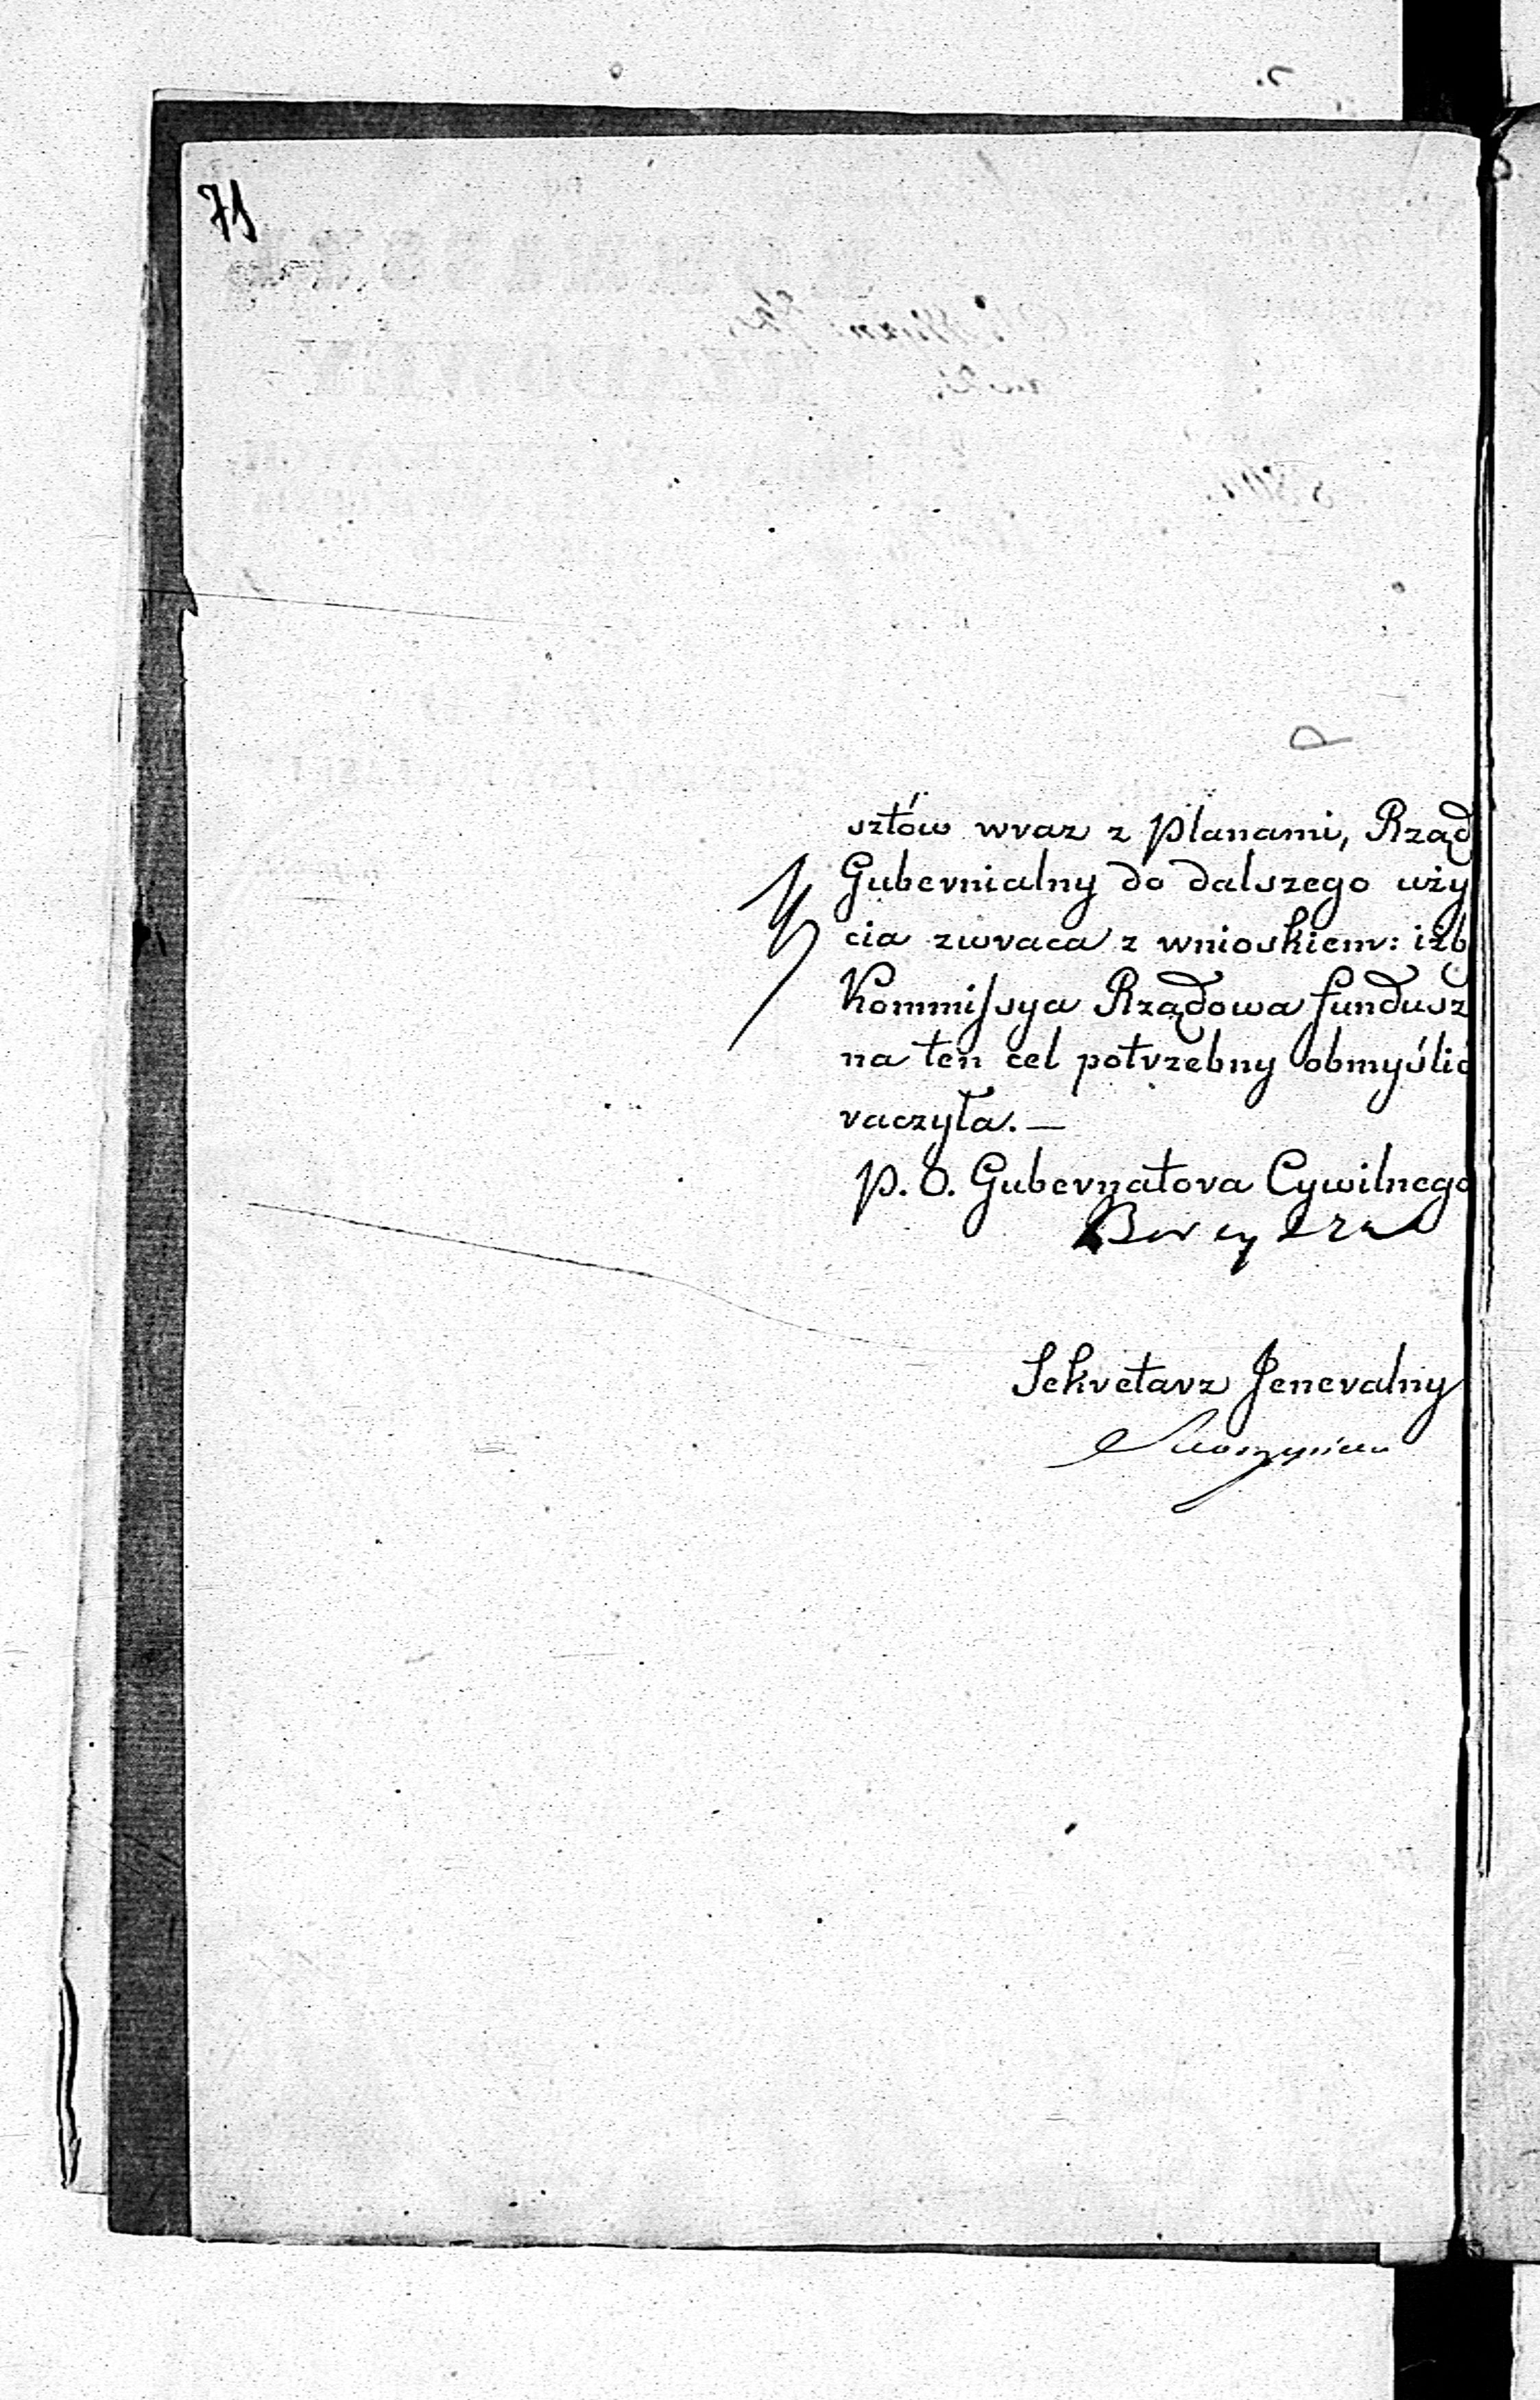 71
sztów wraz z planami, Rząd
Gubernialny do dalszego uży
cia zwraca z wnioskiem: iżb
Kommissya Rządowa fundusz
na ten cel potrzebny obmyślić
raczyła.—
p.o. Gubernatora Cywilnego
Sekretarz Jeneralny